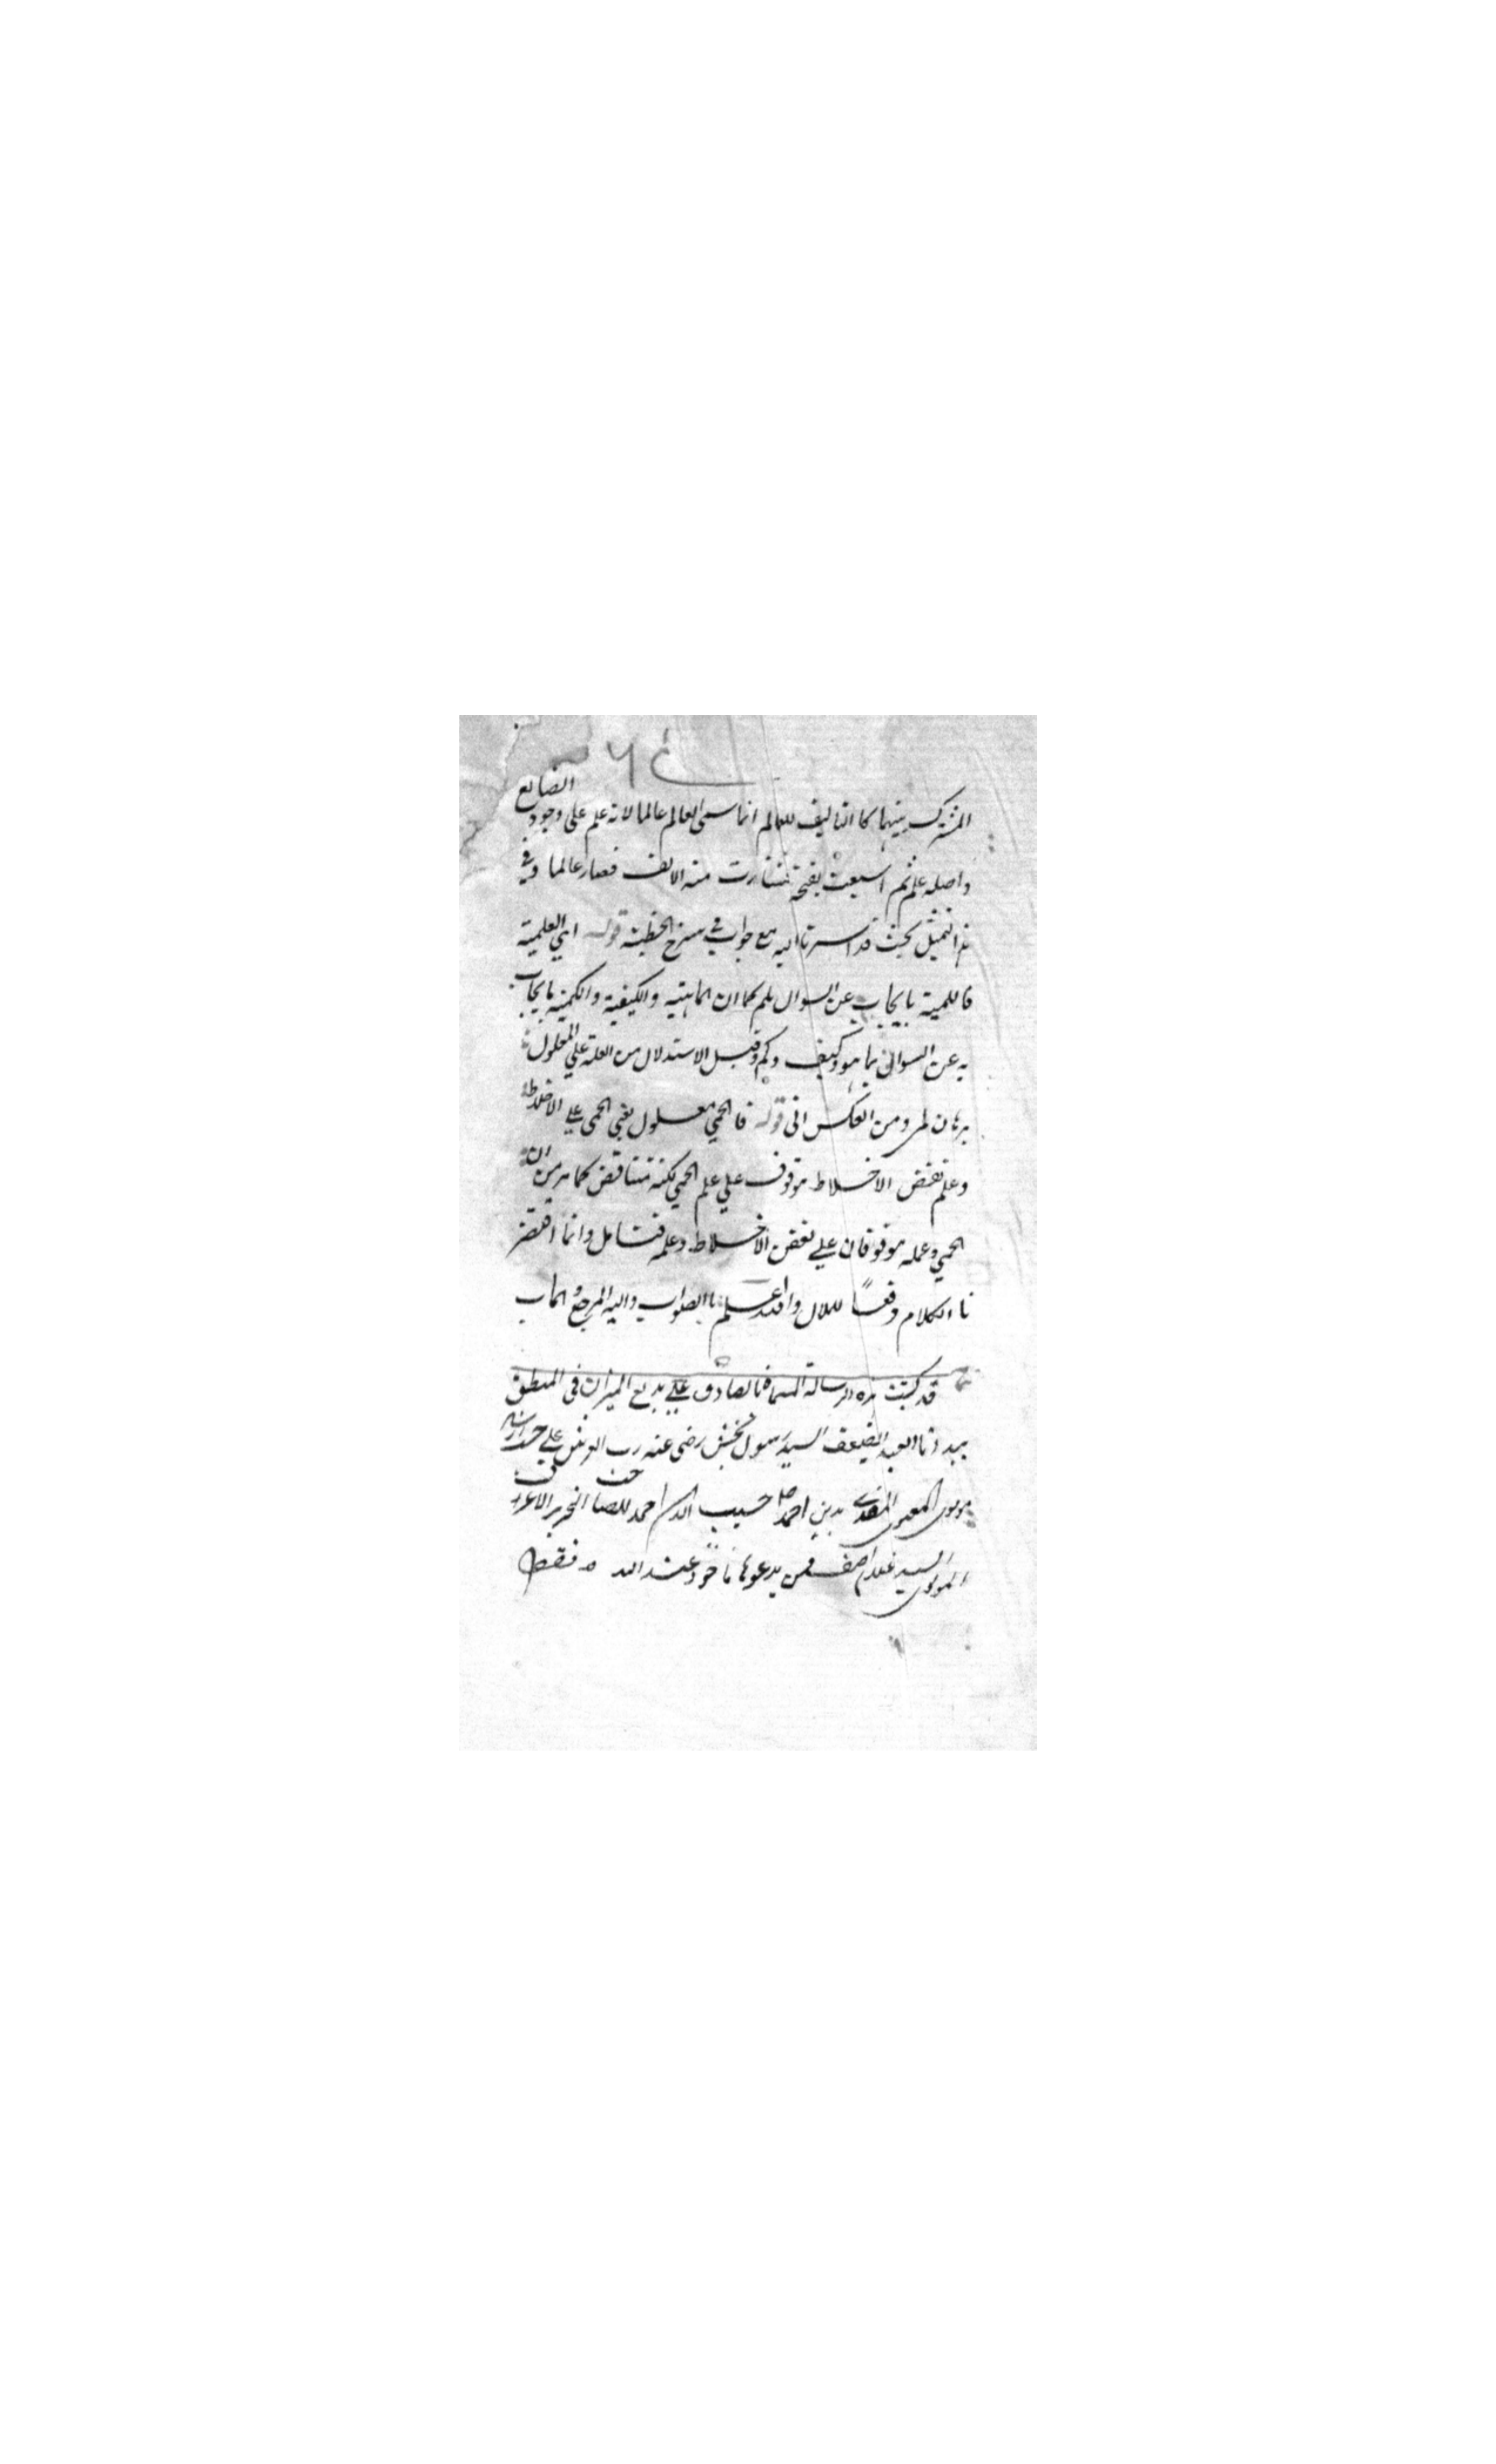 المشترك بينهما كالتاليف للعالم انما سمى العالم عالما لانه علم على وجود الصانع
واصله علم ثم اشبعت بفتحة منه الالف فصار عالما وفي
التمثيل بحيث قد اليه مع جوابه في شرح الخطبة قوله اي العلمية
فاللمية ما يجاب عن السوال بلم كما ان الماهية والكيفية والكمية ما يجاب
به عن السوال بما هو وكيف وكم وقيل الاستدلال من العلة على المعلول
برهان لمي ومن العكس اني قوله فالحمى معلول يعني الحمى على الاخلاط
وعلم تعفن الاخلاط موقوف على علم الحمى لكنه تناقض كما مر من ان
الحمى وعلمه موقوفان على تعفن الاخلاط وعلمه فتامل وانما اقتصر
نا الكلام دفعا للملال والله اعلم بالصواب واليه المرجع والماب
قد كتبت هذه الرسالة المسماة بالصادق على بديع الميزان في المنطق
بيد انا العبد الضعيف السيد رسول بخش رضي عنه رب العرش على
مولوى المعنوى احمد حبيب احمد النحرير
المولوى السيد غلام فمن يدعوها عند الله فقط